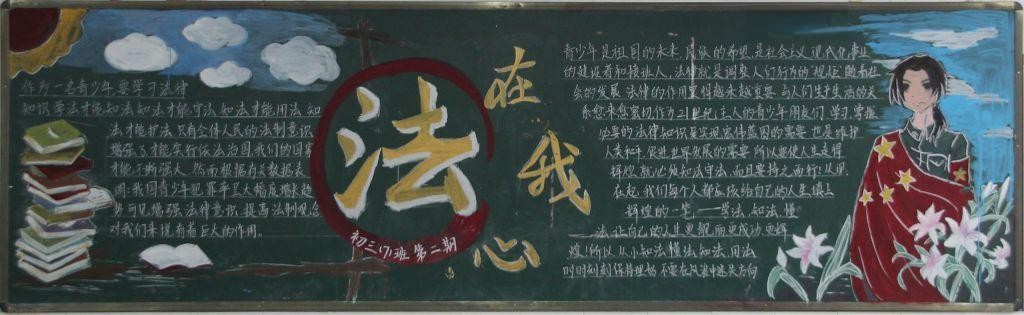 作为一名青少年,要学习法律
知识学法才能知法,知法才能守法,知法才能用法,知
法才能护法.只有全体人民的法制意识
增强了才能实行依法治国,我们的国家
才能不断强大.然而根据有关数据表
明:我国青少年犯罪率呈大幅度增长趋
势可见增强法律意识,提高法制观念
对我们来说有着巨大的作用。
法
在我心
初三(7)班 第二期
青少年是祖国的未来,民族的希望,是社会主义现代化事业
的建设者和接班人,法律就是调整人们行为的"规范"随着社
会的发展,法律的作用显得越来越重要,与人们生产生活的关
系愈来愈密切.作为21世纪主人的青少年朋友们,学习,掌握
必要的法律知识是实现宏伟蓝图的需要,也是维护
人类和平,促进世界发展的需要.所以要使人生走得
辉煌,就必须知法守法,而且要持之而行!从现
在起,我们每个人都应该给自己的人生填上
辉煌的一笔——学法,知法,懂
法.让自己的人生更靓丽更成功更辉
煌!所以从小知法懂法,知法,用法
时时刻刻保持理智,不要在风浪中迷失方向